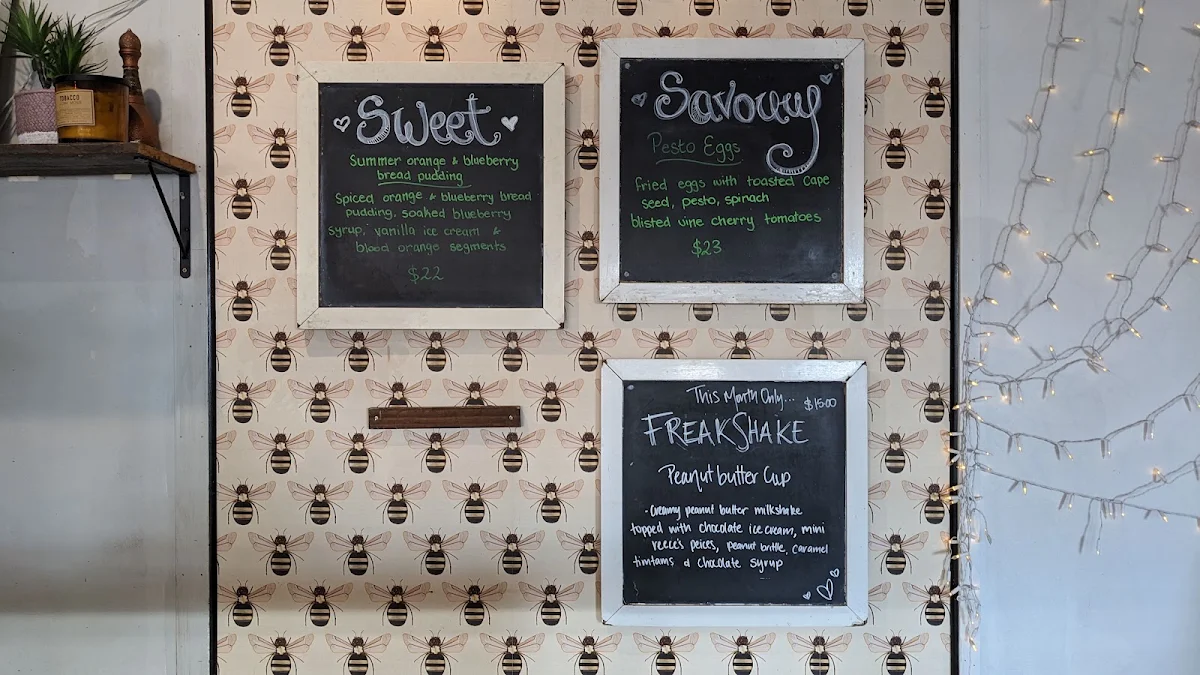 Sweet
Summer orange & blueberry
bread pudding
Spiced orange & blueberry bread
pudding, soaked blueberry
syrup, vanilla ice cream &
blood orange segments
$22
Savoury
Pesto Eggs
fried eggs with toasted cape
seed, pesto, spinach
blisted vine cherry tomatoes
$23
This Month Only... $15.00
FREAKSHAKE
Peanut butter Cup
- Creamy peanut butter milkshake
topped with chocolate ice cream, mini
reece's peices, peanut brittle, caramel
timtams & chocolate syrup
TOBACCO